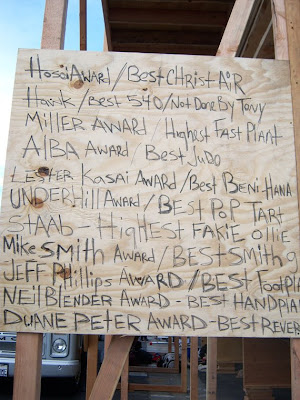 Hosoi Award / Best Christ Air
Hawk / Best 540 / Not Done By Tony
Miller Award / Highest Fast Plant
Alba Award / Best Judo
Lester Kasai Award / Best Beni-Hana
Underhill Award / Best Pop Tart
Staab - Highest Fakie Ollie
Mike Smith Award / Best Smith g
Jeff Phillips Award / Best Tootpla
Neil Blender Award - Best Handplan
Duane Peter Award - Best Revers